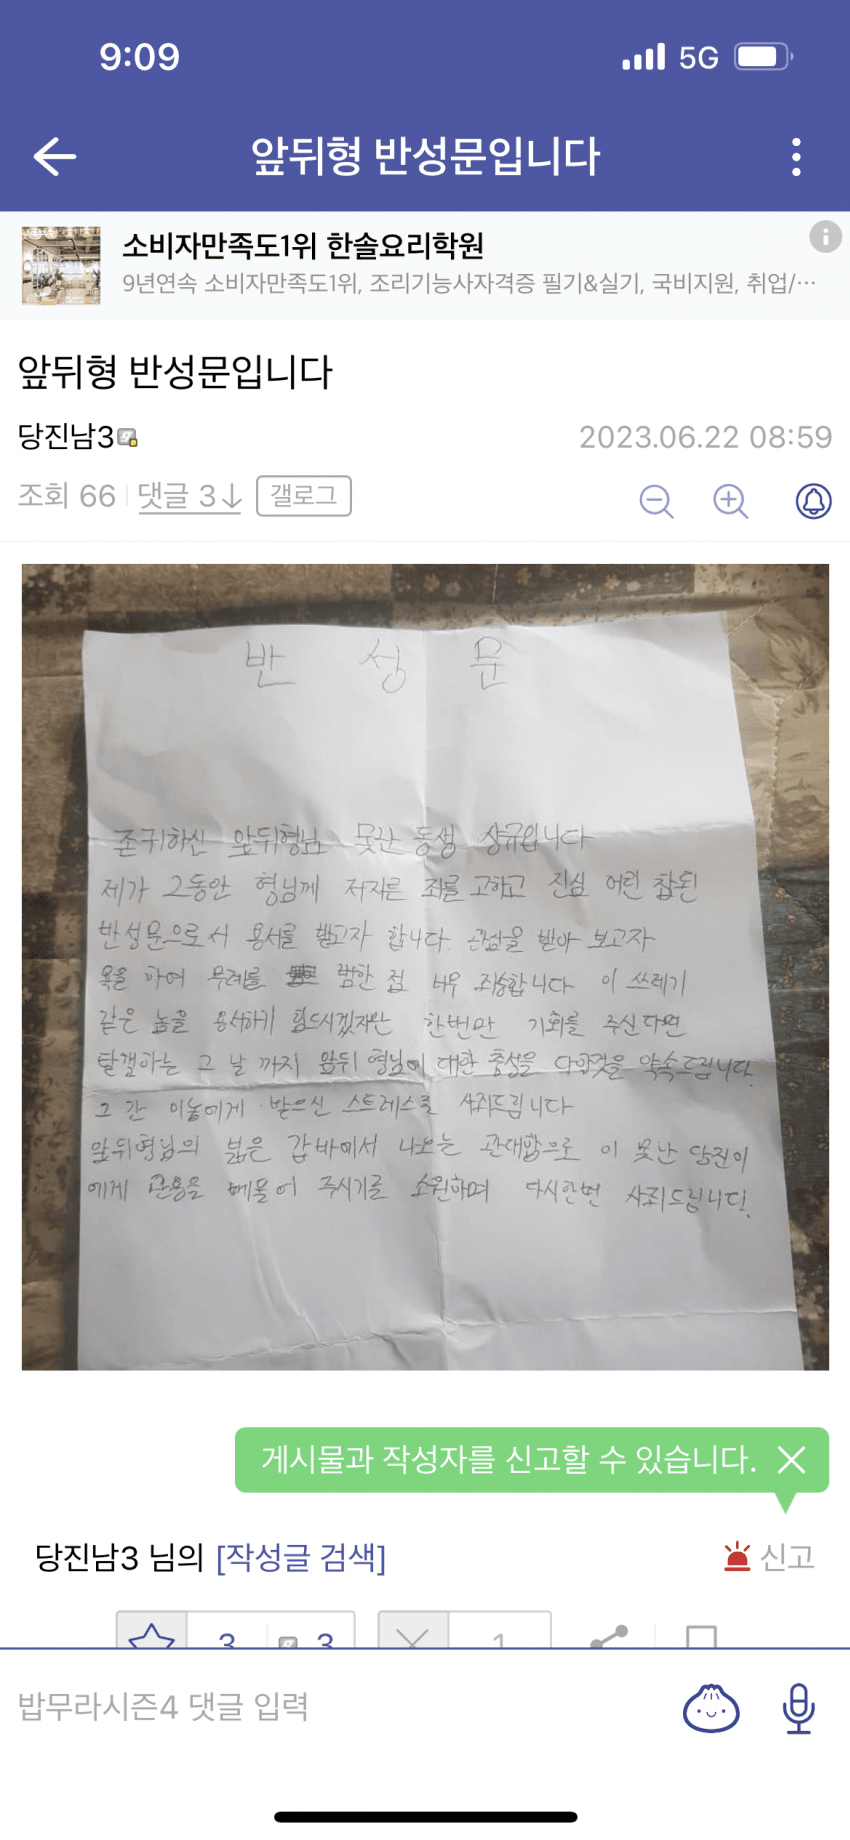 9:09
5G
앞뒤형 반성문입니다
소비자만족도1위 한솔요리학원
9년연속 소비자만족도1위, 조리기능사자격증 필기&실기, 국비지원, 취업/···
앞뒤형 반성문입니다
당진남3
2023.06.22 08:59
조회 66 댓글 3↓ 갤로그
반 성 문
존귀하신 앞뒤형님 못난 동생 상규입니다
제가 그동안 형님께 저지른 죄를 고하고 진심 어린 참된
반성문으로서 용서를 받고자 합니다. 관심을 받아 보고자
욕을 하며 무례를 범한 점 너무 죄송합니다 이 쓰레기
같은 놈을 용서하기 힘드시겠지만 한번만 기회를 주신다면
탈갤하는 그 날 까지 앞뒤 형님에 대한 충성을 다할것을 약속드립니다.
그 간 이놈에게 받으신 스트레스를 사죄드립니다
앞뒤형님의 넓은 갑바에서 나오는 관대함으로 이 못난 당진이
에게 관용을 베풀어 주시기를 소원하며 다시한번 사죄드립니다.
게시물과 작성자를 신고할 수 있습니다.
당진남3 님의 [작성글 검색] 신고
3 3 1
밥무라시즌4 댓글 입력